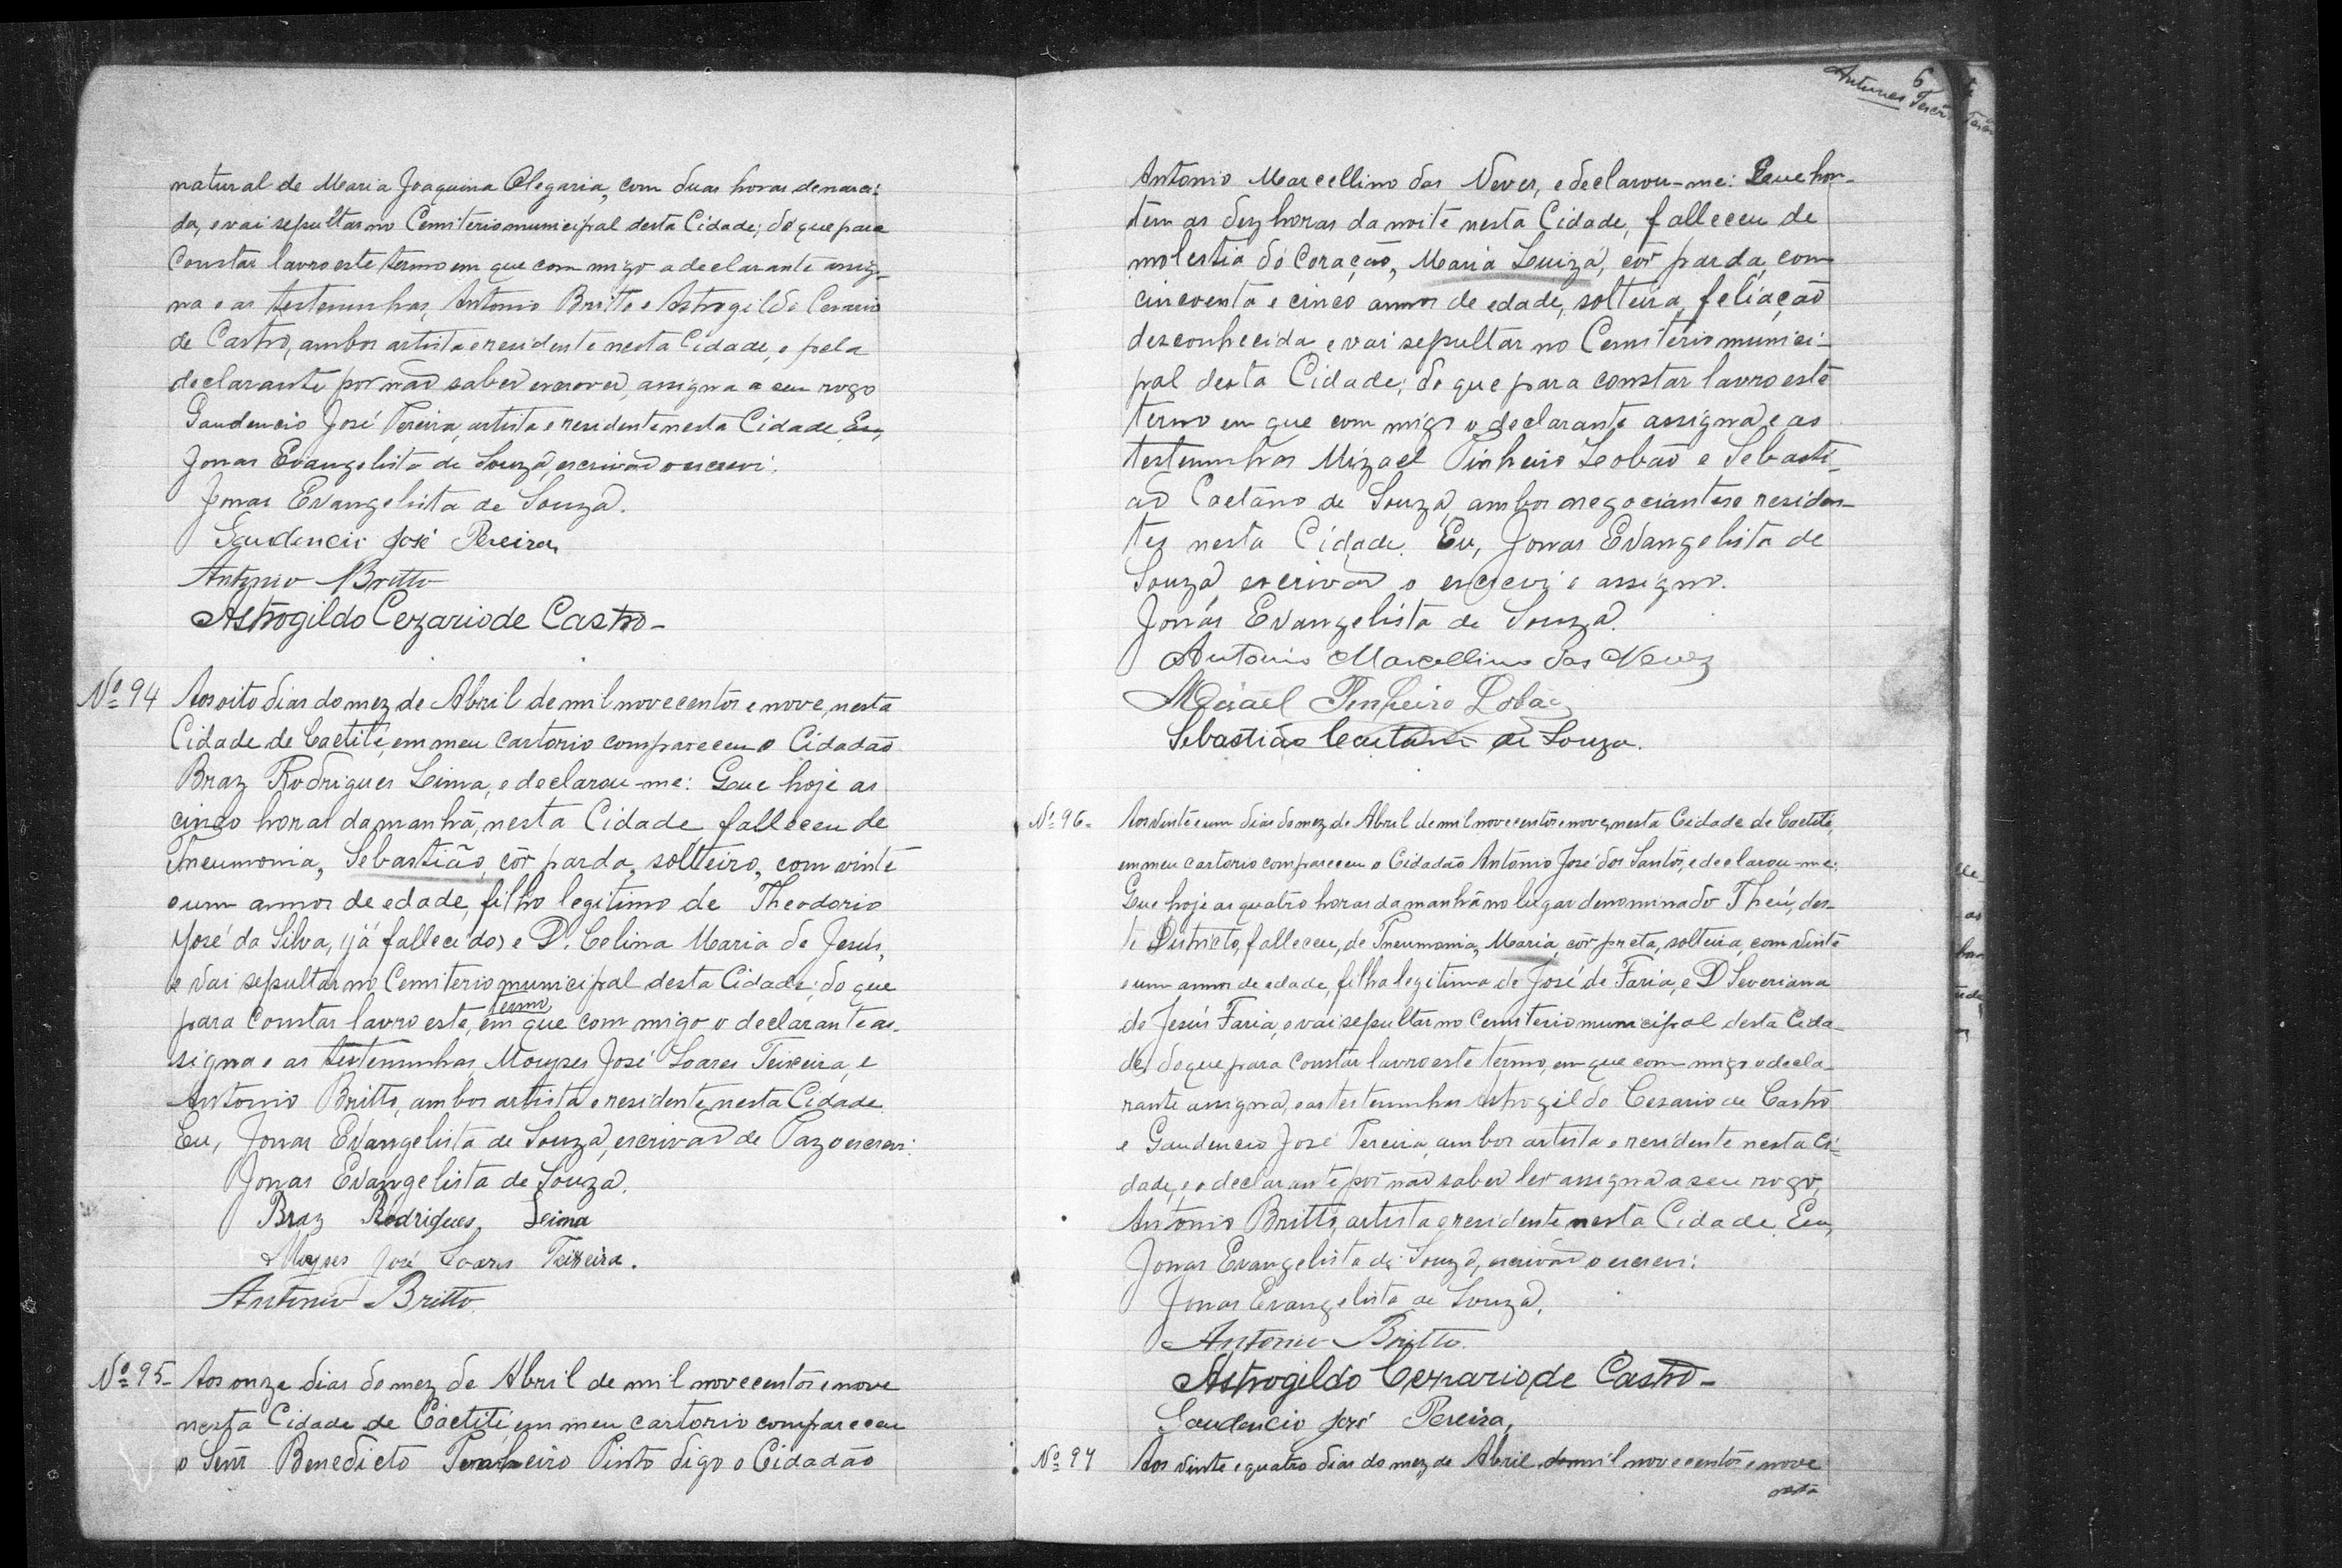 natural de Maria Joaquina Olegaria, com duas horas denasci-
da, e vai sepultar no Cemiterio municipal desta Cidade; do que para
Constar lavro este termo em que com migo a declarante assig-
na e as testemunhas, Antonio Britto e Astrogildo Cesario
de Castro, ambos artista e residente nesta Cidade, e pela
declarante por não saber escrever, assigna a seu rogo
Gaudencio José Pereira, artista e residente nesta Cidade. Eu,
Jonas Evangelista de Souza, escrivão o escrevi.
Jonas Evangelista de Souza.
Gaudencio José Pereira,
Antonio Britto
Astrogildo Cezario de Castro-
Nº 94 Aos oito dias do mez de Abril de mil nove centos e nove, nesta
Cidade de Caetité, em meu cartorio compareceu o Cidadão
Braz Rodrigues Leima, e declarou-me: Que hoje as
cinco horas da manhã, nesta Cidade falleceu de
Pneumonia, Sebastião, côr parda, solteiro, com vinte
e um annos de edade, filho legitimo de Theodorio
José da Silva, (já fallecido) e D. Celina Maria de Jesús,
e vai sepultar no Cemiterio municipal desta Cidade; do que
para Constar lavro este, termo em que com migo o declarante as-
signa e as testemunhas Moyses José Soares Teixeira, e
Antonio Britto, ambos artista e residente nesta Cidade.
Eu, Jonas Evangelista de Souza, escrivão de Paz o escrevi.
Jonas Evangelista de Souza.
Braz Rodrigues Leima
Moyses José Soares Teixeira.
Antonio Britto.
Nº 95- Aos onze dias do mez de Abril de mil nove centos e nove
nesta Cidade de Caetité, em meu cartorio compareceu
o Senr Benedicto Pinheiro Pinto digo o Cidadão
6
Antunes
Antonio Marcellino das Neves, e declarou-me: Que hon-
tem as dez horas da noite nesta Cidade, falleceu de
molestia do Coração, Maria Luiza, côr parda, com
cincoenta e cinco annos de edade, solteira, feliação
desconhecida e vai sepultar no Cemiterio munici-
pal desta Cidade; do que para constar lavro este
termo em que com migo o declarante assigna, e as
testemunhas Mizael Pinheiro Lobão e Sebasti-
ão Caetano de Souza, ambos negociantes e residen-
tes nesta Cidade. Eu, Jonas Evangelista de
Souza, escrivão o escrevi e assigno.
Jonas Evangelista de Souza.
Antonio Marcellino das Neves
Misael Pinheiro Lobão
Sebastião Caetano de Souza.
Nº 96- Aos vinte e um dias do mez de Abril de mil nove centos e nove, nesta Cidade de Caetité,
em meu cartorio compareceu o Cidadão Antonio José dos Santos, e declarou-me:
Que hoje as quatro horas da manhã no lugar denominado Theú, des-
te Districto, falleceu, de Pneumonia, Maria, côr preta, solteira, com vinte
e um annos de edade, filha legitima de José de Faria, e D. Severiana
de Jesús Faria, e vai sepultar no Cemiterio municipal desta Cida-
de, do que para Constar lavro este termo, em que com migo o decla-
rante assigna, e as testemunhas Astrogildo Cesario de Castro
e Gaudencio José Pereira, ambos artista e residente nesta Ci-
dade, e o declarante por não saber ler assigna a seu rogo,
Antonio Britto, artista e residente nesta Cidade. Eu,
Jonas Evangelista de Souza, escrivão o escrevi:
Jonas Evangelista de Souza.
Antonio Britto.
Astrogildo Cezario de Castro-
Gaudencio José Pereira,
Nº 97 Aos vinte e quatro dias do mez de Abril de mil nove centos e nove
nesta